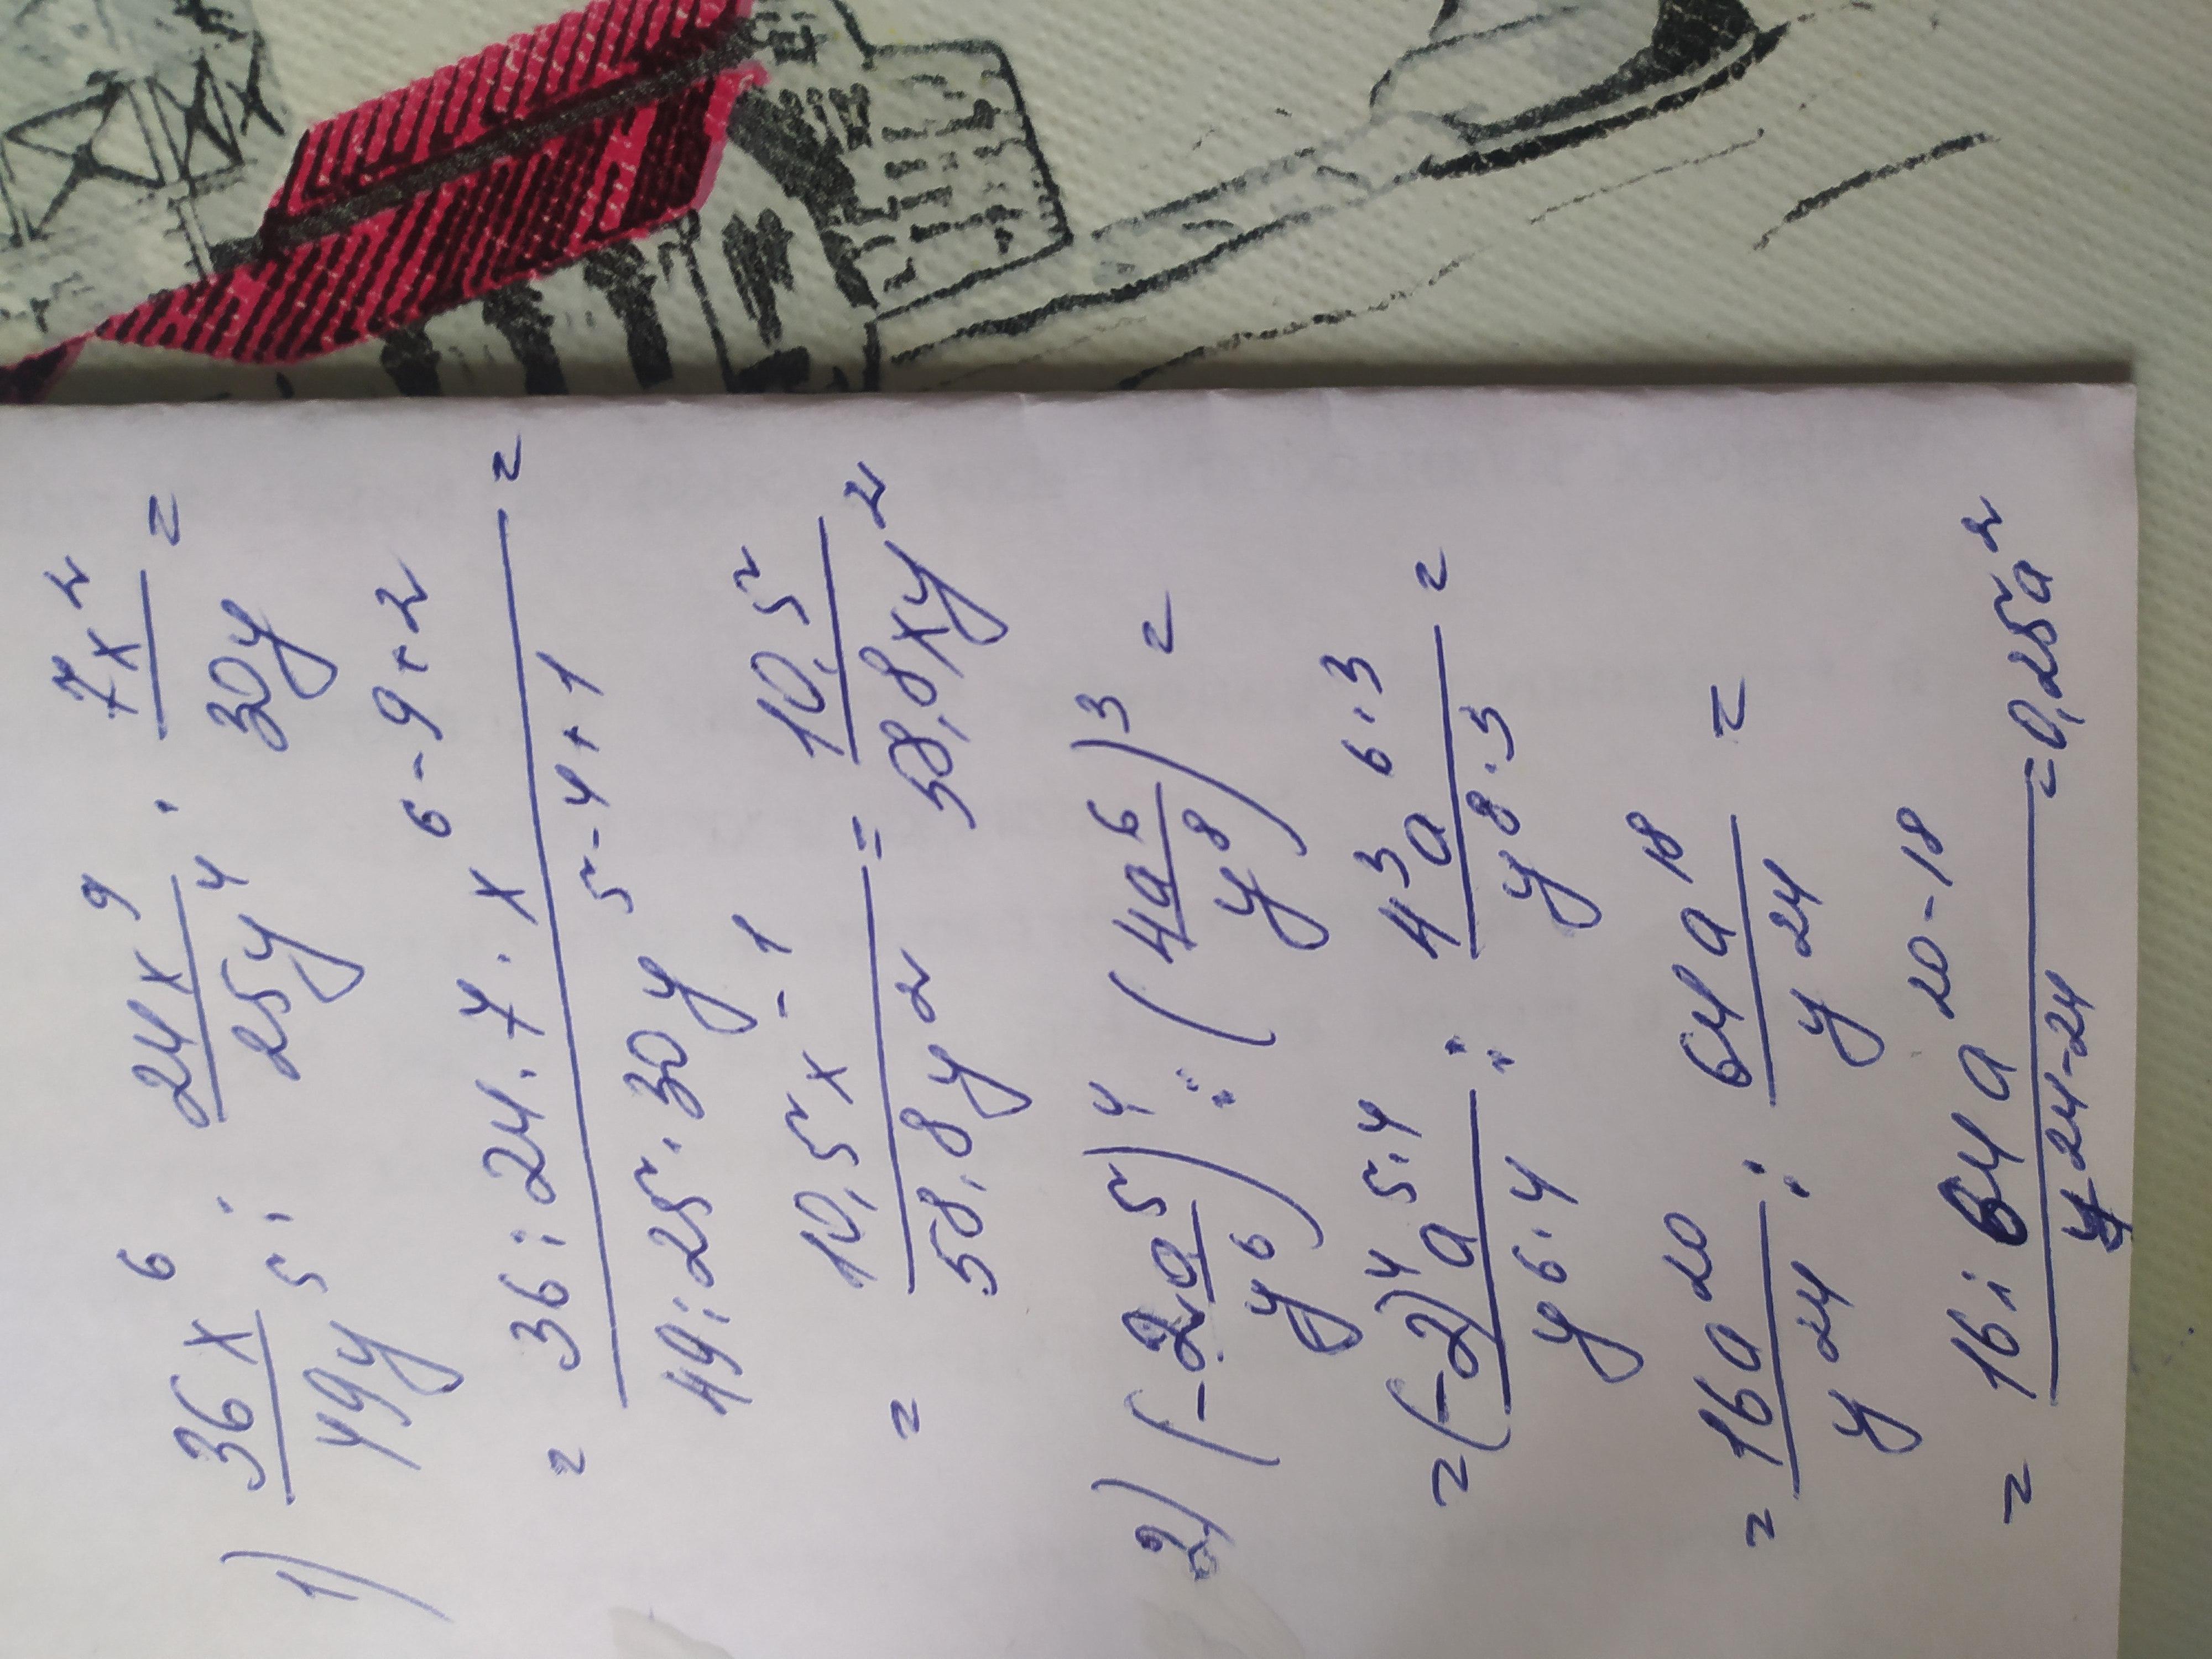 1) 36x⁶/49y⁵ : 24x⁹/25y⁴ · 7x²/30y =
= 36:24·7·x⁶⁻⁹⁺²/49:25·30y⁵⁻⁴⁺¹ =
= 10,5x⁻¹/58,8y² = 10,5/58,8xy²
2) (-2a⁵/y⁶)⁴ : (4a⁶/y⁸)³ =
= (-2)⁴a⁵·⁴/y⁶·⁴ : 4³a⁶·³/y⁸·³ =
= 16a²⁰/y²⁴ : 64a¹⁸/y²⁴ =
= 16:64a²⁰⁻¹⁸/y²⁴⁻²⁴ = 0,25a²